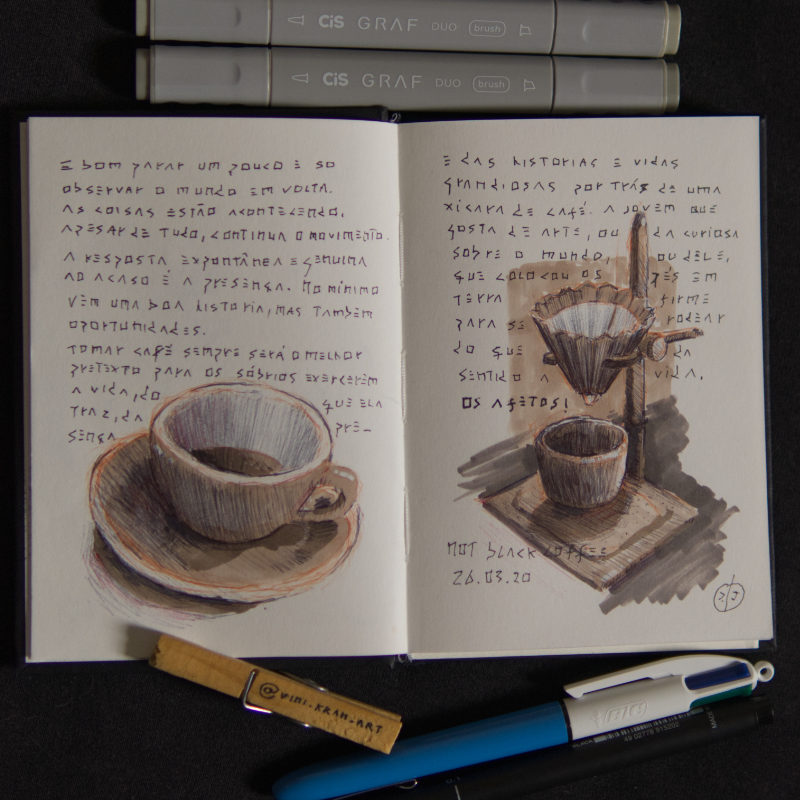 CiS GRAF DUO brush
CiS GRAF DUO brush
É bom parar um pouco e só
observar o mundo em volta.
As coisas estão acontecendo.
Apesar de tudo, continua o movimento.
A resposta expontânea e genuína
ao acaso é a presença. No mínimo
vem uma boa história, mas também
oportunidades.
Tomar café sempre será o melhor
pretexto para os sábios exercerem
a vida, do que ela
traz, da pre-
sença
E das histórias e vidas
grandiosas por trás de uma
xícara de café. A jovem que
gosta de arte, ou da curiosa
sobre o mundo, ou dele,
que colocou os pés em
terra firme
para se rodear
do que da
sentido a vida,
os afetos!
HOT BLACK COFFEE
26.03.20
@vini.kran.art
BIC